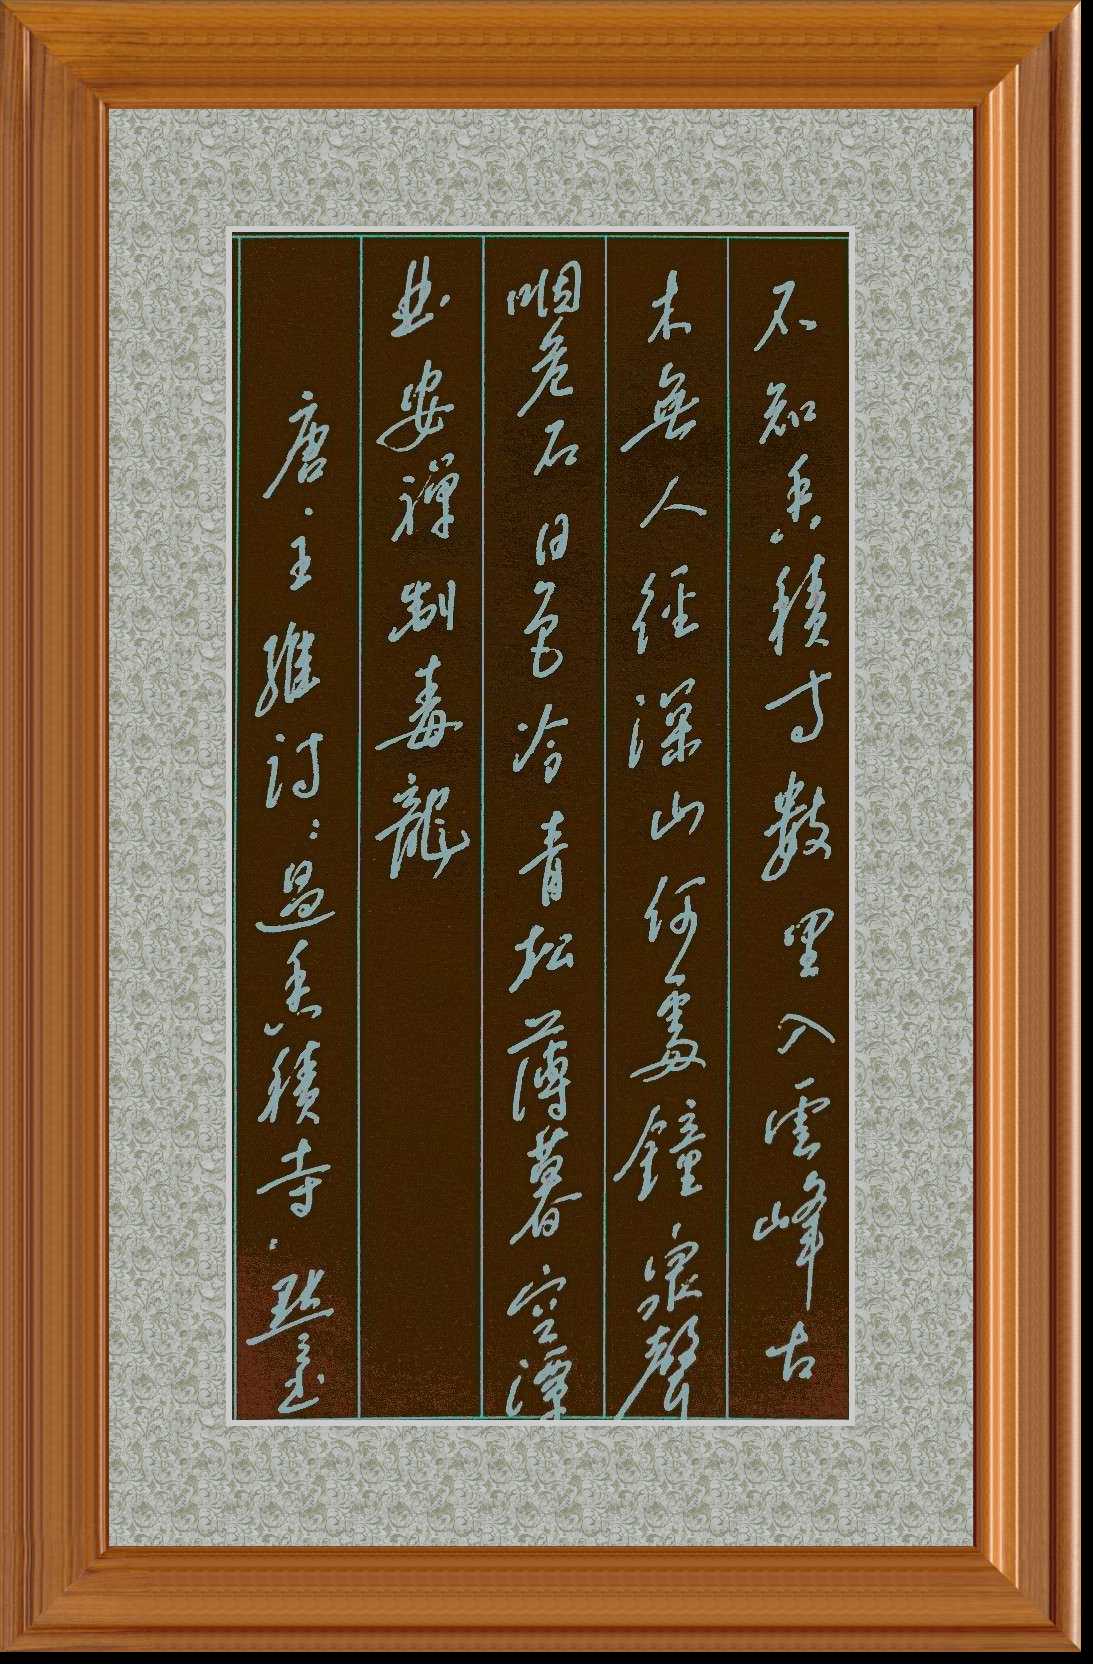 不知香積寺數里入雲峰古
木無人徑深山何處鐘泉聲
咽危石日色冷青松薄暮空潭
曲安禪制毒龍
唐·王維詩：過香積寺·